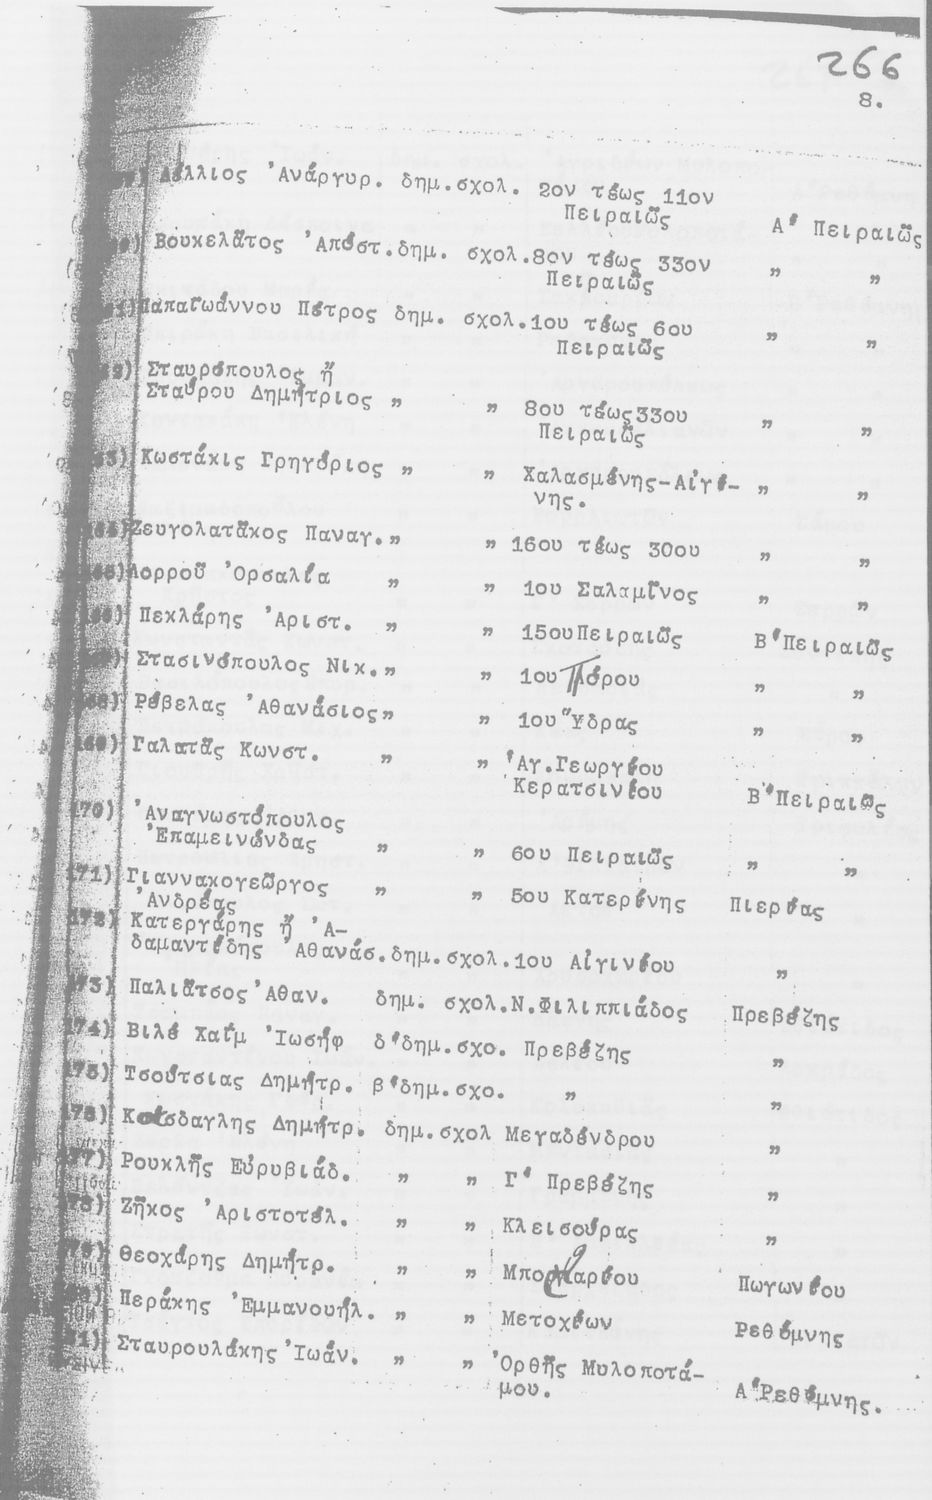 266
8.
Δέλλιος Ἀνάργυρ. δημ.σχολ. 2ον τέως 11ον
Πειραιῶς Α΄ Πειραιῶς
Βουκελᾶτος Ἀπόστ.δημ. σχολ.8ον τέως 33ον
Πειραιῶς " "
Παπαϊωάννου Πέτρος δημ. σχολ.1ου τέως 6ου
Πειραιῶς " "
Σταυρόπουλος ἤ
Σταύρου Δημήτριος " " 8ου τέως33ου
Πειραιῶς " "
Κωστάκις Γρηγόριος " " Χαλασμένης-Αἰγί-
νης. " "
Ζευγολατᾶκος Παναγ." " 16ου τέως 30ου " "
Λορροῦ Ὀρσαλία " " 1ου Σαλαμῖνος " "
Πεκλάρης Ἀριστ. " " 15ουΠειραιῶς Β΄Πειραιῶς
Στασινόπουλος Νικ." " 1ου Πόρου " "
168) Ρέβελας Ἀθανάσιος" " 1ου Ὕδρας " "
169) Γαλατᾶς Κωνστ. " " Ἁγ.Γεωργίου
Κερατσινίου Β΄Πειραιῶς
170) Ἀναγνωστόπουλος
Ἐπαμεινώνδας " " 6ου Πειραιῶς " "
171) Γιαννακογεῶργος " " 5ου Κατερίνης Πιερίας
Ἀνδρέας
172) Κατεργάρης ἤ Ἀ-
δαμαντίδης Ἀθανάσ.δημ.σχολ.1ου Αἰγινίου "
173) Παλιᾶτσος Ἀθαν. δημ. σχολ.Ν.Φιλιππιάδος Πρεβέζης
174) Βιλέ Χαΐμ Ἰωσήφ δ΄δημ.σχο. Πρεβέζης "
175) Τσούτσιας Δημήτρ. β΄δημ.σχο. " "
176) Κατσδαγλης Δημήτρ. δημ.σχολ Μεγαδένδρου "
177) Ρουκλῆς Εὐρυβιάδ. " " Γ΄ Πρεβέζης "
178) Ζῆκος Ἀριστοτέλ. " " Κλεισούρας "
179) Θεοχάρης Δημήτρ. " " Πωγωνίου
Περάκης Ἐμμανουήλ. " " Μετοχίων Ρεθύμνης
Σταυρουλάκης Ἰωάν. " " Ὀρθῆς Μυλοποτά-
μου. Α΄Ρεθύμνης.